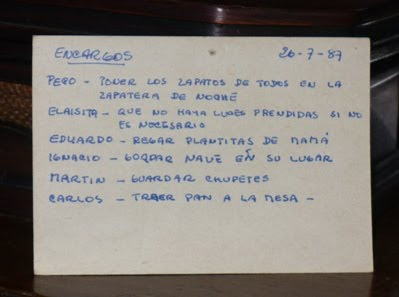 ENCARGOS 26-7-87
PEPO - PONER LOS ZAPATOS DE TODOS EN LA
ZAPATERA DE NOCHE
ELAISITA - QUE NO HAYA LUCES PRENDIDAS SI NO
ES NECESARIO
EDUARDO - REGAR PLANTITAS DE MAMÁ
IGNACIO - GUARDAR NAVE EN SU LUGAR
MARTIN - GUARDAR CHUPETES
CARLOS - TRAER PAN A LA MESA -